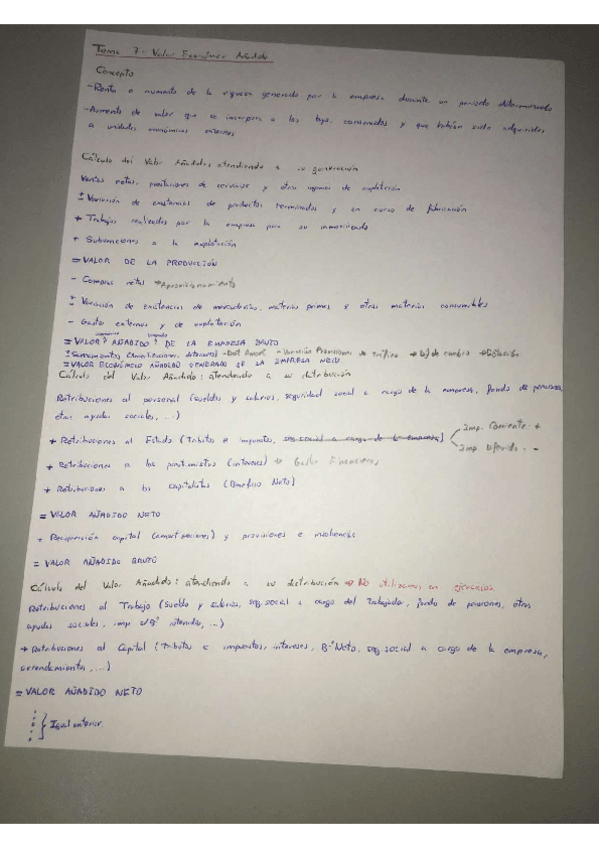 Tema 7: Valor Económico Añadido
Concepto
- Renta o aumento de la riqueza generado por la empresa durante un periodo determinado
- Aumento de valor que se incorpora a los bys. consumidos y que habían sido adquiridos
a unidades económicas externas
Cálculo del Valor Añadido: atendiendo a su generación
Ventas netas, prestaciones de servicios y otros ingresos de explotación
± Variación de existencias de productos terminados y en curso de fabricación
+ Trabajos realizados por la empresa para su inmovilizado
+ Subvenciones a la explotación
= VALOR DE LA PRODUCCIÓN
- Compras netas → Aprovisionamiento
± Variación de existencias de mercaderías, materias primas y otras materias consumibles
- Gastos externos y de explotación
= VALOR AÑADIDO DE LA EMPRESA BRUTO
(Amortizaciones, deterioros) - Dot. Amort. - Variación Provisiones de tráfico
= VALOR ECONÓMICO AÑADIDO GENERADO DE LA EMPRESA NETO
Cálculo del Valor Añadido: atendiendo a su distribución
Retribuciones al personal (sueldos y salarios, seguridad social a cargo de la empresa, fondo de pensiones,
otras ayudas sociales, ...)
+ Retribuciones al Estado (Tributos e impuestos, seg. social a cargo de la empresa)
Imp. Corriente. +
Imp. Diferido. -
+ Retribuciones a los prestamistas (intereses) → Gastos Financieros
+ Retribuciones a los capitalistas (Beneficio Neto)
= VALOR AÑADIDO NETO
+ Recuperación capital (amortizaciones) y provisiones e insolvencias
= VALOR AÑADIDO BRUTO
Cálculo del Valor Añadido: atendiendo a su distribución → No utilizamos en ejercicios
Retribuciones al Trabajo (Sueldo y salarios, seg. social a cargo del trabajador, fondo de pensiones, otras
ayudas sociales, imp s/Bº retenidos, ...)
+ Retribuciones al Capital (Tributos e impuestos, intereses, Bº Neto, seg. social a cargo de la empresa,
arrendamientos, ...)
= VALOR AÑADIDO NETO
Igual anterior